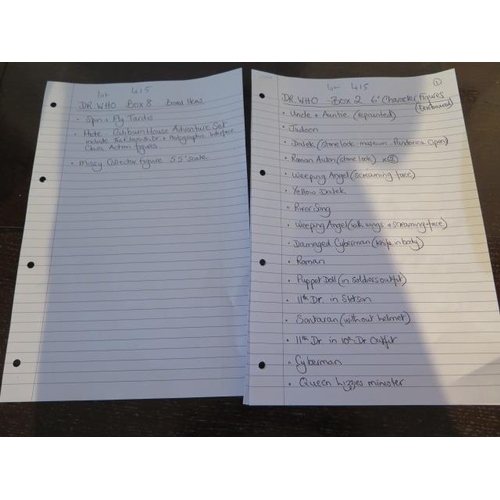 Lot 415
DR. WHO Box 8 Boxed Items
• Spin + Fly Tardis
• Hide - Caliburn House Adventure Set
include the Doctor + Photographic
Chase Action figures
• Missy Collector figure 5.5" scale
Lot 415
DR. WHO Box 2 6" Character Figures
(unboxed)
• Uncle + Auntie (repainted)
• Judoon
• Dalek (stone look museum Pandorica Open)
• Roman Auton (stone look)
• Weeping Angel (screaming face)
• Yellow Dalek
• River Song
• Weeping Angel (with wings + screaming face)
• Damaged Cyberman (knife in body)
• Roman
• Puppet Doll (in soldiers outfit)
• 11th Dr. in Stetson
• Sontaran (without helmet)
• 11th Dr. in 10th Dr Outfit
• Cyberman
• Queen Lizzies minister